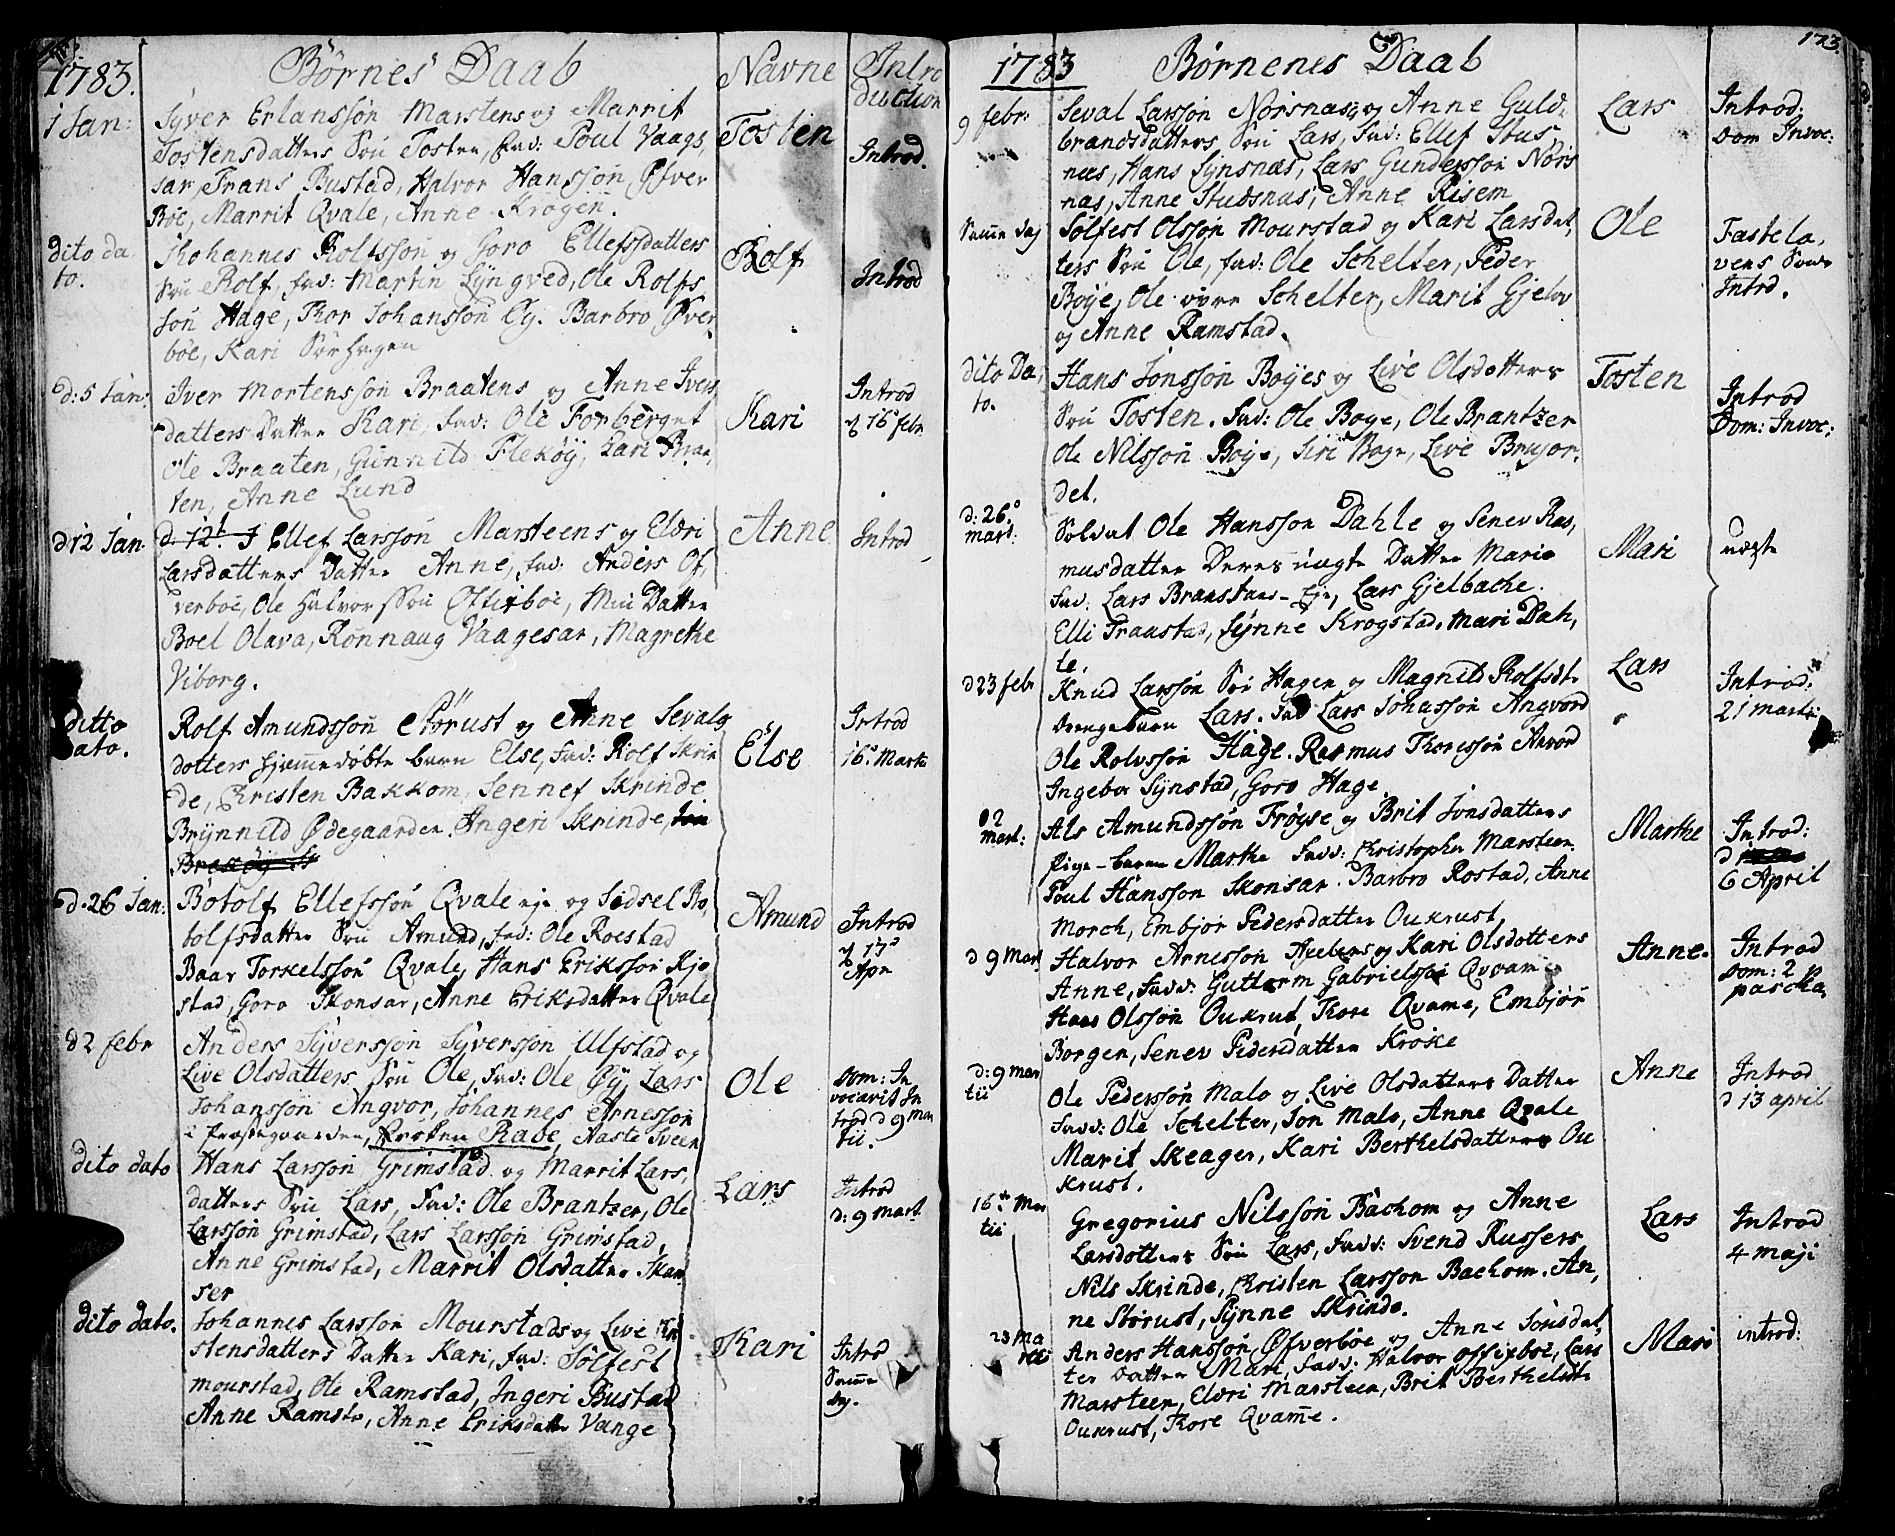 1783.
Börnes Daab
Navne
Intro
duction
1 Jan:
Syver Erlansson Marstens og Marrit
Tostensdatters Søn Tosten, fad: Poul Vaage,
sar, Frans Bustad, Halvor Hansson Øfver
Böe, Marrit Qvale, Anne Krogen.
Tosten
Introd.
dito da
to.
Johannes Rolfsson og Goro Ellefsdatters
Søn Rolf, fad: Martin Lyngved, Ole Rolfs
søn Hage, Thor Johansson Ey. Barbro Øver
böe, Kari Sørhagen
Rolf
Introd
d: 5 Jan:
Iver Mortensson Braatens og Anne Ivers
datters Datter Kari, fad: Ole Forberget
Ole Braaten, Gunnild Flekøy, Kari Braa,
ten, Anne Lund
Kari
Introd
16 febr
d 12 Jan
Ellef Larsson Marsteens og Eldri
Larsdatters Datter Anne, fad: Anders Of,
verboe, Ole Halvorsson Offigboe, Min Datter
Boel Olava, Rönnaug Vaagesar, Magrethe
Viborg.
Anne
Introd
ditto
dato.
Rolf Amundsson Störust og Anne Sevals
dotters hjemmedøbte barn Else, fad: Rolf Skrin
de, Christen Bakkom, Sennef Skrinde
Brynnild Ødegaarden, Angeri Skrinde,
Else
Introd
16 Martii
d. 26 Jan:
Botolf Ellefsson Qvale eje og Sidsel Bo,
tolfsdatter Søn Amund, fad: Ole Roestad
Baar Torkelsson Qvale, Hans Eriksson Kje
stad, Goro Skonsar, Anne Eriksdatter Qvale
Amund
Introd
17
Apr
d 2 febr
Anders Syversson Syversson Ulfstad og
Live Olsdatters Søn Ole, fad: Ole Øy, Lars
Johansson Angvor, Johannes Arnesson
i Præstegaarden, Kirsten Rabe, Aaste Sveen
Ole
Dom: In
vocavit In
trod d 9 Mar
tii.
dito dato
Hans Larsson Grimstad og Marrit Lars,
datters Søn Lars, fad: Ole Brantzer, Ole
Larsson Grimstad, Lars Larsson Grimstad,
Anne Grimstad, Marrit Olsdatter Skan
ser
Lars
Introd
d: 9 Mart
dito dato.
Johannes Larsson Mourstads og Live Kri
stensdatters Datter Kari, fad: Solfest
mourstad, Ole Ramstad, Ingeri Bustad
Anne Ramstr, Anne Eriksdatter Vange
Kari
Introd
Samme
dag.
173.
1783
Börnenes Daab
9 febr:
Seval Larsson Norsnæs og Anne Guld,
brandsdatters Søn Lars, fad: Ellef Stus
næs, Hans Synsnæs, Lars Gundersson Nors
næs, Anne Studsnæs, Anne Risem
Lars
Introd:
Dom Invoc:
Samme dag
Solfest Olsson Mourstad og Kari Larsdat,
ters Søn Ole, fad: Ole Schelter, Peder
Boye, Ole øvre Schelter, Marit Gjelov
og Anne Ramstad.
Ole
Fastela,
vens Søndag
Introd.
dito Da,
to.
Hans Jonsson Boyes og Live Olsdatters
Søn Tosten. fad: Ole Boye, Ole Brantzer
Ole Nilsson Boye, Siri Boye, Live Bruior
det.
Tosten
Introd
Dom: Invoc:
d: 26
mart:
Soldat Ole Hansson Dahle og Senev Ras,
musdatter Deres uægte Datter Marie
fad: Lars Branstans-Eje, Lars Gjelbache.
Elli Fraastad, Synne Krogstad, Mari Dah,
le.
Mari
uægte
d 23 febr
Knud Larsson Søi Hagen og Magnild Rolfsdtr
Drengebarn Lars. fad Lars Johasson Angvord
Ole Rolvsson Hage. Rasmus Thoresson Anvord
Ingebor Synstad, Goro Hage.
Lars
Introd.
21 Martii
2
mart:
Als Amundsson Frøyse og Brit Jonsdatters
Pige-barn Marthe fadd: Christopher Marsteen.
Poul Hansson Skonsar. Barbro Rostad, Anne
Morch, Embjor Pedersdatter Oukrust,
Marthe
Introd:
d
6 April
d 9 Mart
Halvor Arnesson og Kari Olsdotters
Anne, fadd: Guttorm Gabrielsson Qvam
Hans Olsson Oukrust, Thore Qvame, Embjör
Borgen, Senev Pedersdatter Kroke
Anne.
Introd
Dom: 2
pascha
d: 9 mar
tii
Ole Pedersson Malo og Live Olsdatters Datter
fadd: Ole Schelter, Jon Malo, Anne Qvale
Marit Skeager, Kari Berthelsdatters Ou
krust.
Anne
Introd
d 13 april
16 Mar
tii
Gregorius Nilsson Bachom og Anne
Larsdotters Søn Lars, fadd: Svend Russers
Nils Skrinde, Christen Larsson Bachom. An,
ne Störust, Synne Skrinde.
Lars
Introd
4 maji
23 Ma
rtii
Anders Hansson, Øfverböe og Anne Jonsdat,
ter Datter Mari, fadd: Halvor offigboe, Lars
Marsteen, Eldri Marsteen, Brit Berthelsdtr
Oukrust, Thore Qvamme.
Mari
introd: